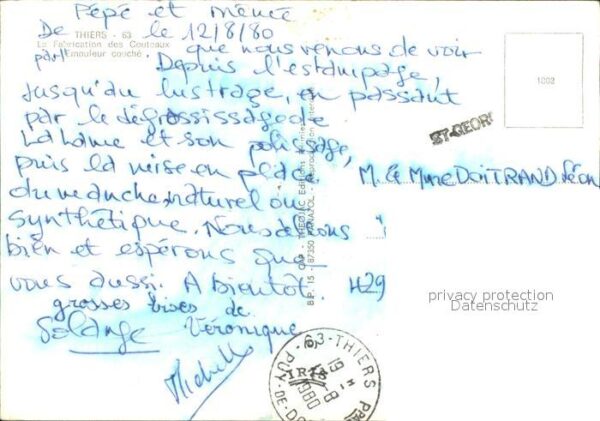 Pépé et mémé
De THIERS - 63 le 12/8/80
La Fabrication des Couteaux
par l'Emouleur couché. que nous venons de voir
Depuis l'estampage,
jusqu'au lustrage, en passant
par le dégrossissage de
la lame et son polissage,
puis la mise en place
du manche naturel ou
synthétique. Nous allons
bien et espérons que
vous aussi. A bientôt.
grosses bises de
Solange Véronique
Michelle
B.P. 15 - 87350 PANAZOL
1092
ST-GEOR
M. & Mme DOITRAND Léon
H29
privacy protection
Datenschutz
63-THIERS PPAL
PUY-DE-DO
19 H
8
1980